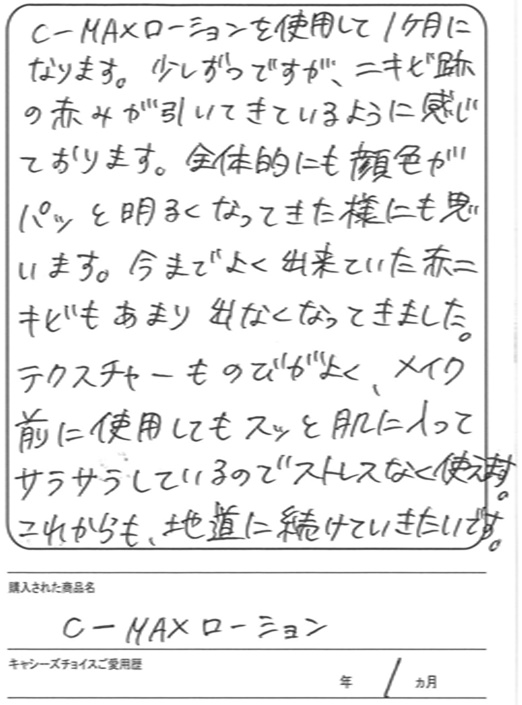 C-MAXローションを使用して1ヶ月に
なります。少しずつですが、ニキビ跡
の赤みが引いてきているように感じ
ております。全体的にも顔色が
パッと明るくなってきた様にも思
います。今までよく出来ていた赤ニ
キビもあまり出なくなってきました。
テクスチャーものびがよく、メイク
前に使用してもスッと肌に入って
サラサラしているのでストレスなく使えます。
これからも、地道に続けていきたいです。
購入された商品名
C-MAXローション
キャシーズチョイスご愛用歴
年 1 ヵ月